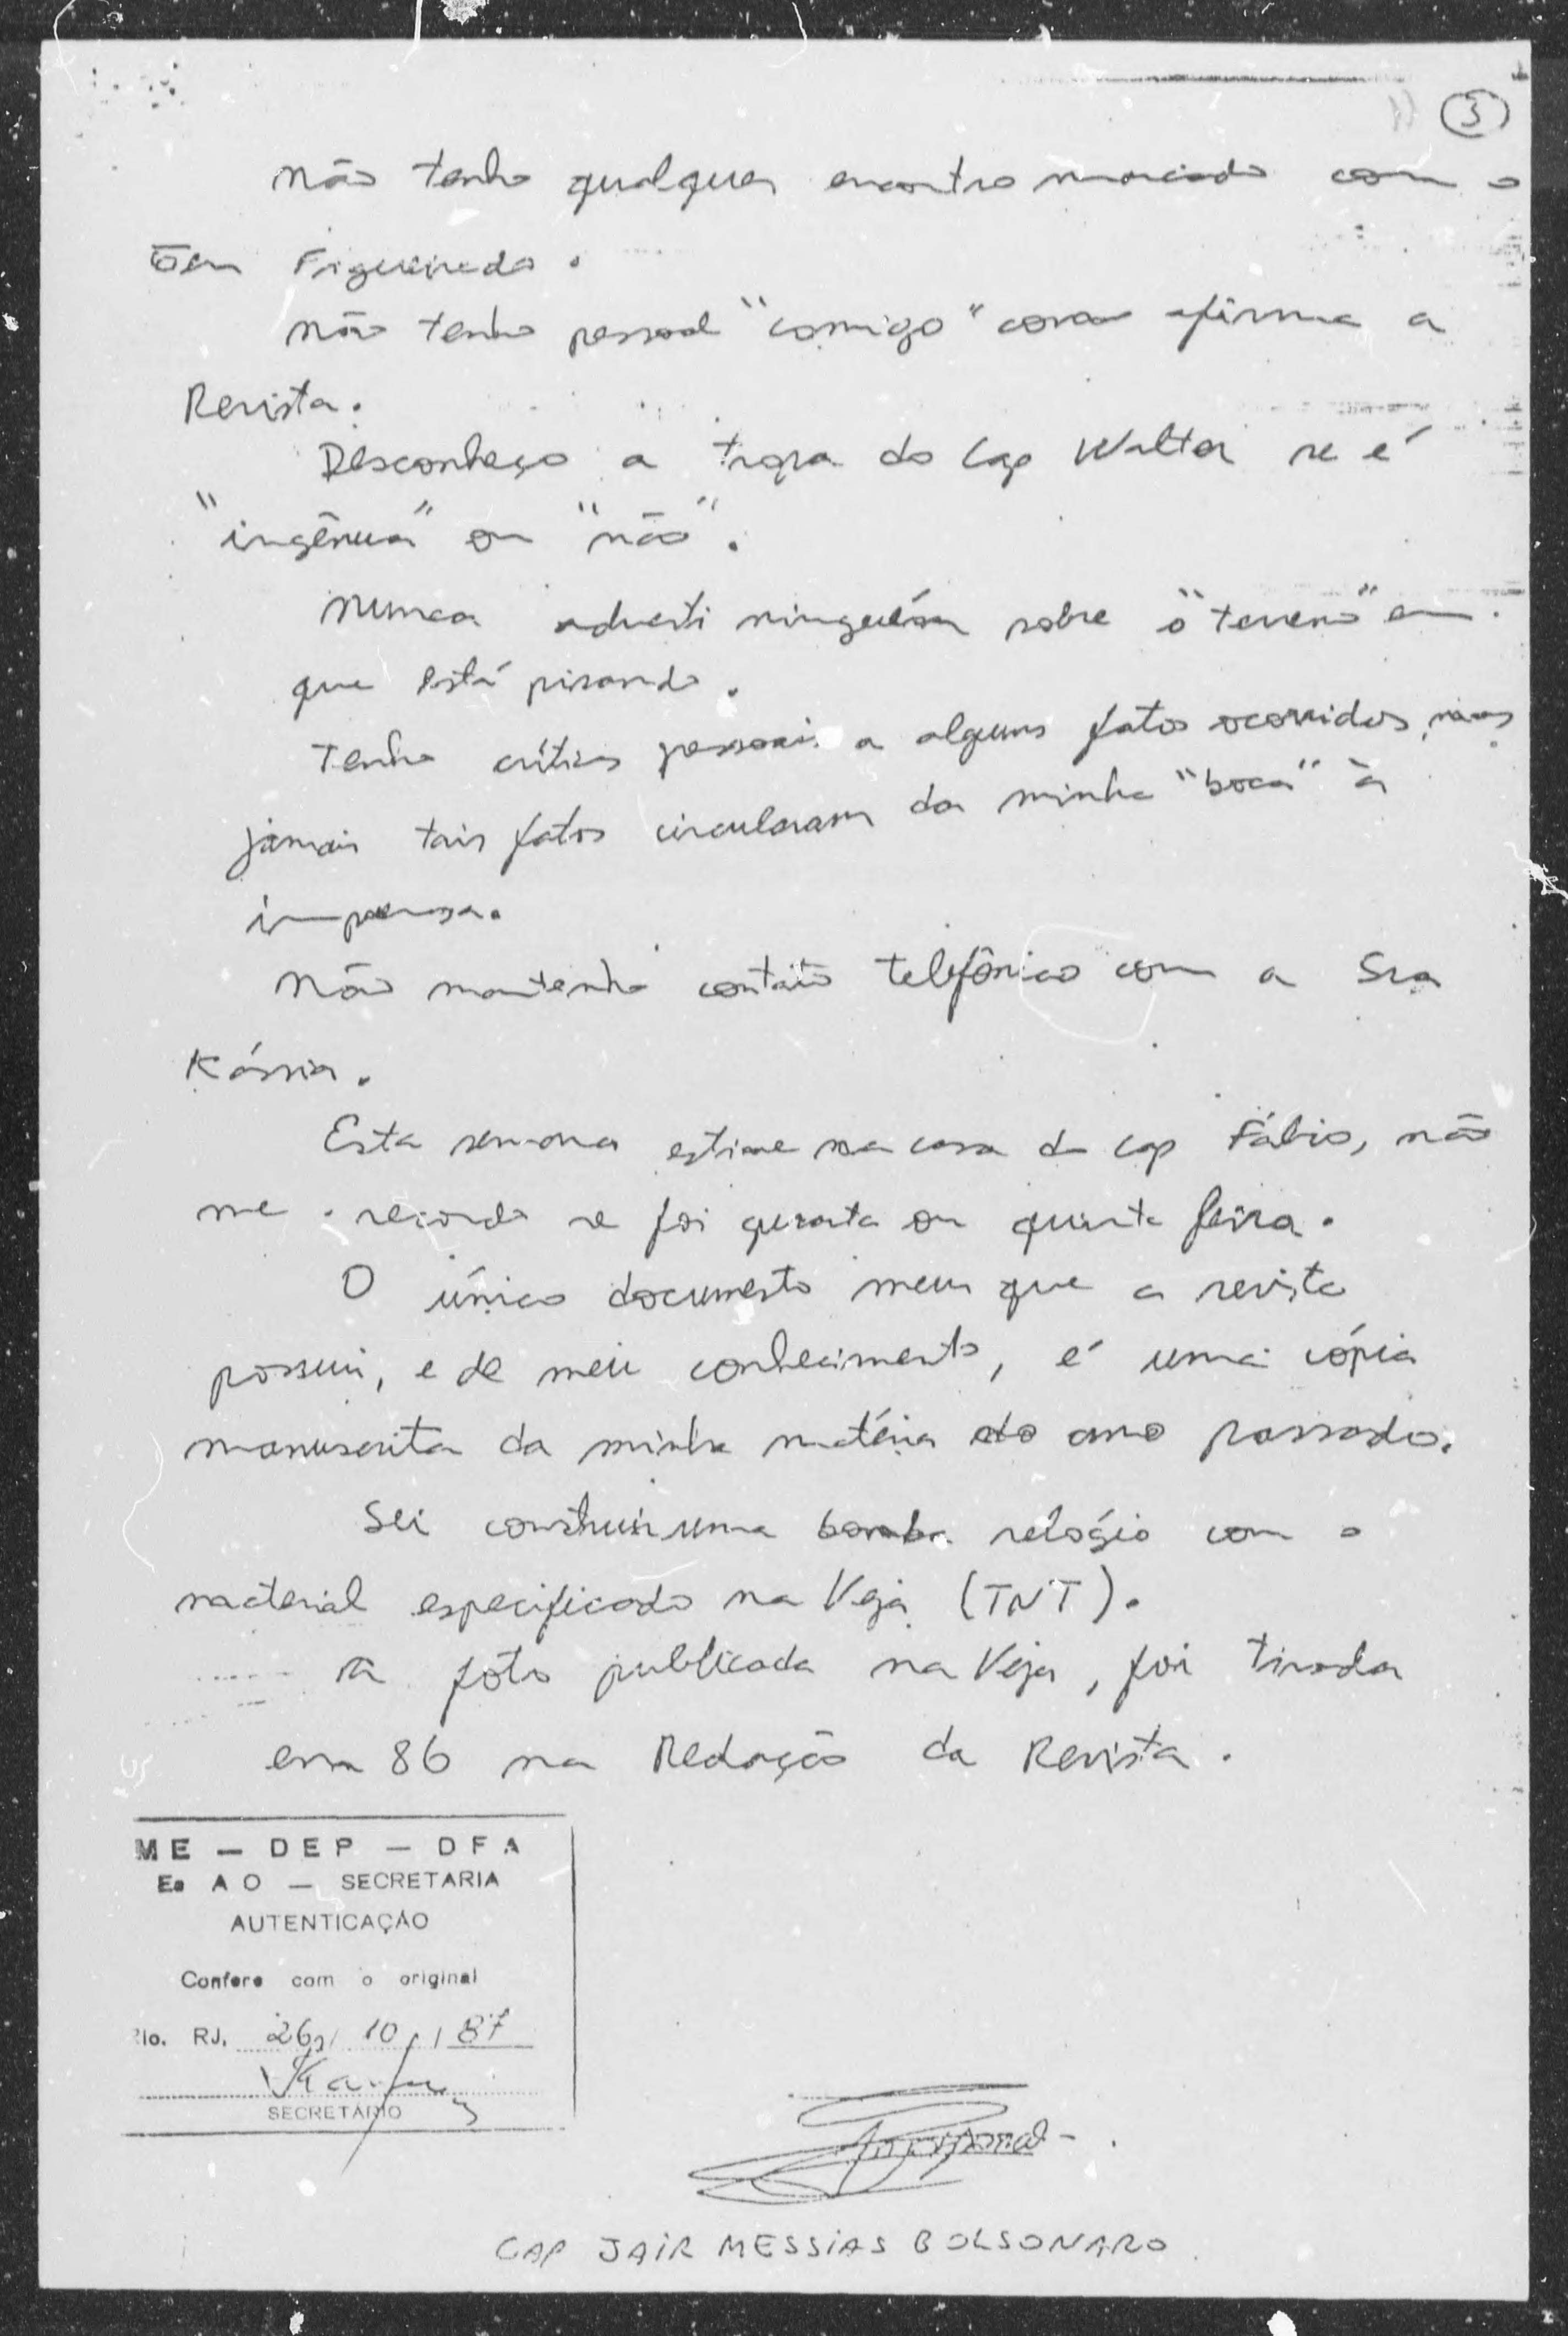 3
Não tenho qualquer encontro marcado com o
Gen Figueiredo.
Não tenho pessoal "comigo" como afirma a
Revista.
Desconheço a tropa do Cap Walter se é
"ingênua" ou "não".
Nunca adverti ninguém sobre o "terreno" em
que está pisando.
Tenho críticas pessoais a alguns fatos ocorridos, mas
jamais tais fatos circularam da minha "boca" à
imprensa.
Não mantenho contato telefônico com a Sra
Kássia.
Esta semana estive na casa do Cap Fábio, não
me recordo se foi quarta ou quinta feira.
O único documento meu que a revista
possui, e de meu conhecimento, é uma cópia
manuscrita da minha matéria do ano passado.
Sei construir uma bomba relógio com o
material especificado na Veja (TNT).
A foto publicada na Veja, foi tirada
em 86 na Redação da Revista.
ME — DEP — DFA
Es AO — SECRETARIA
AUTENTICAÇÃO
Confere com o original
Rio. RJ. 26 / 10 / 87
SECRETÁRIO
CAP JAIR MESSIAS BOLSONARO